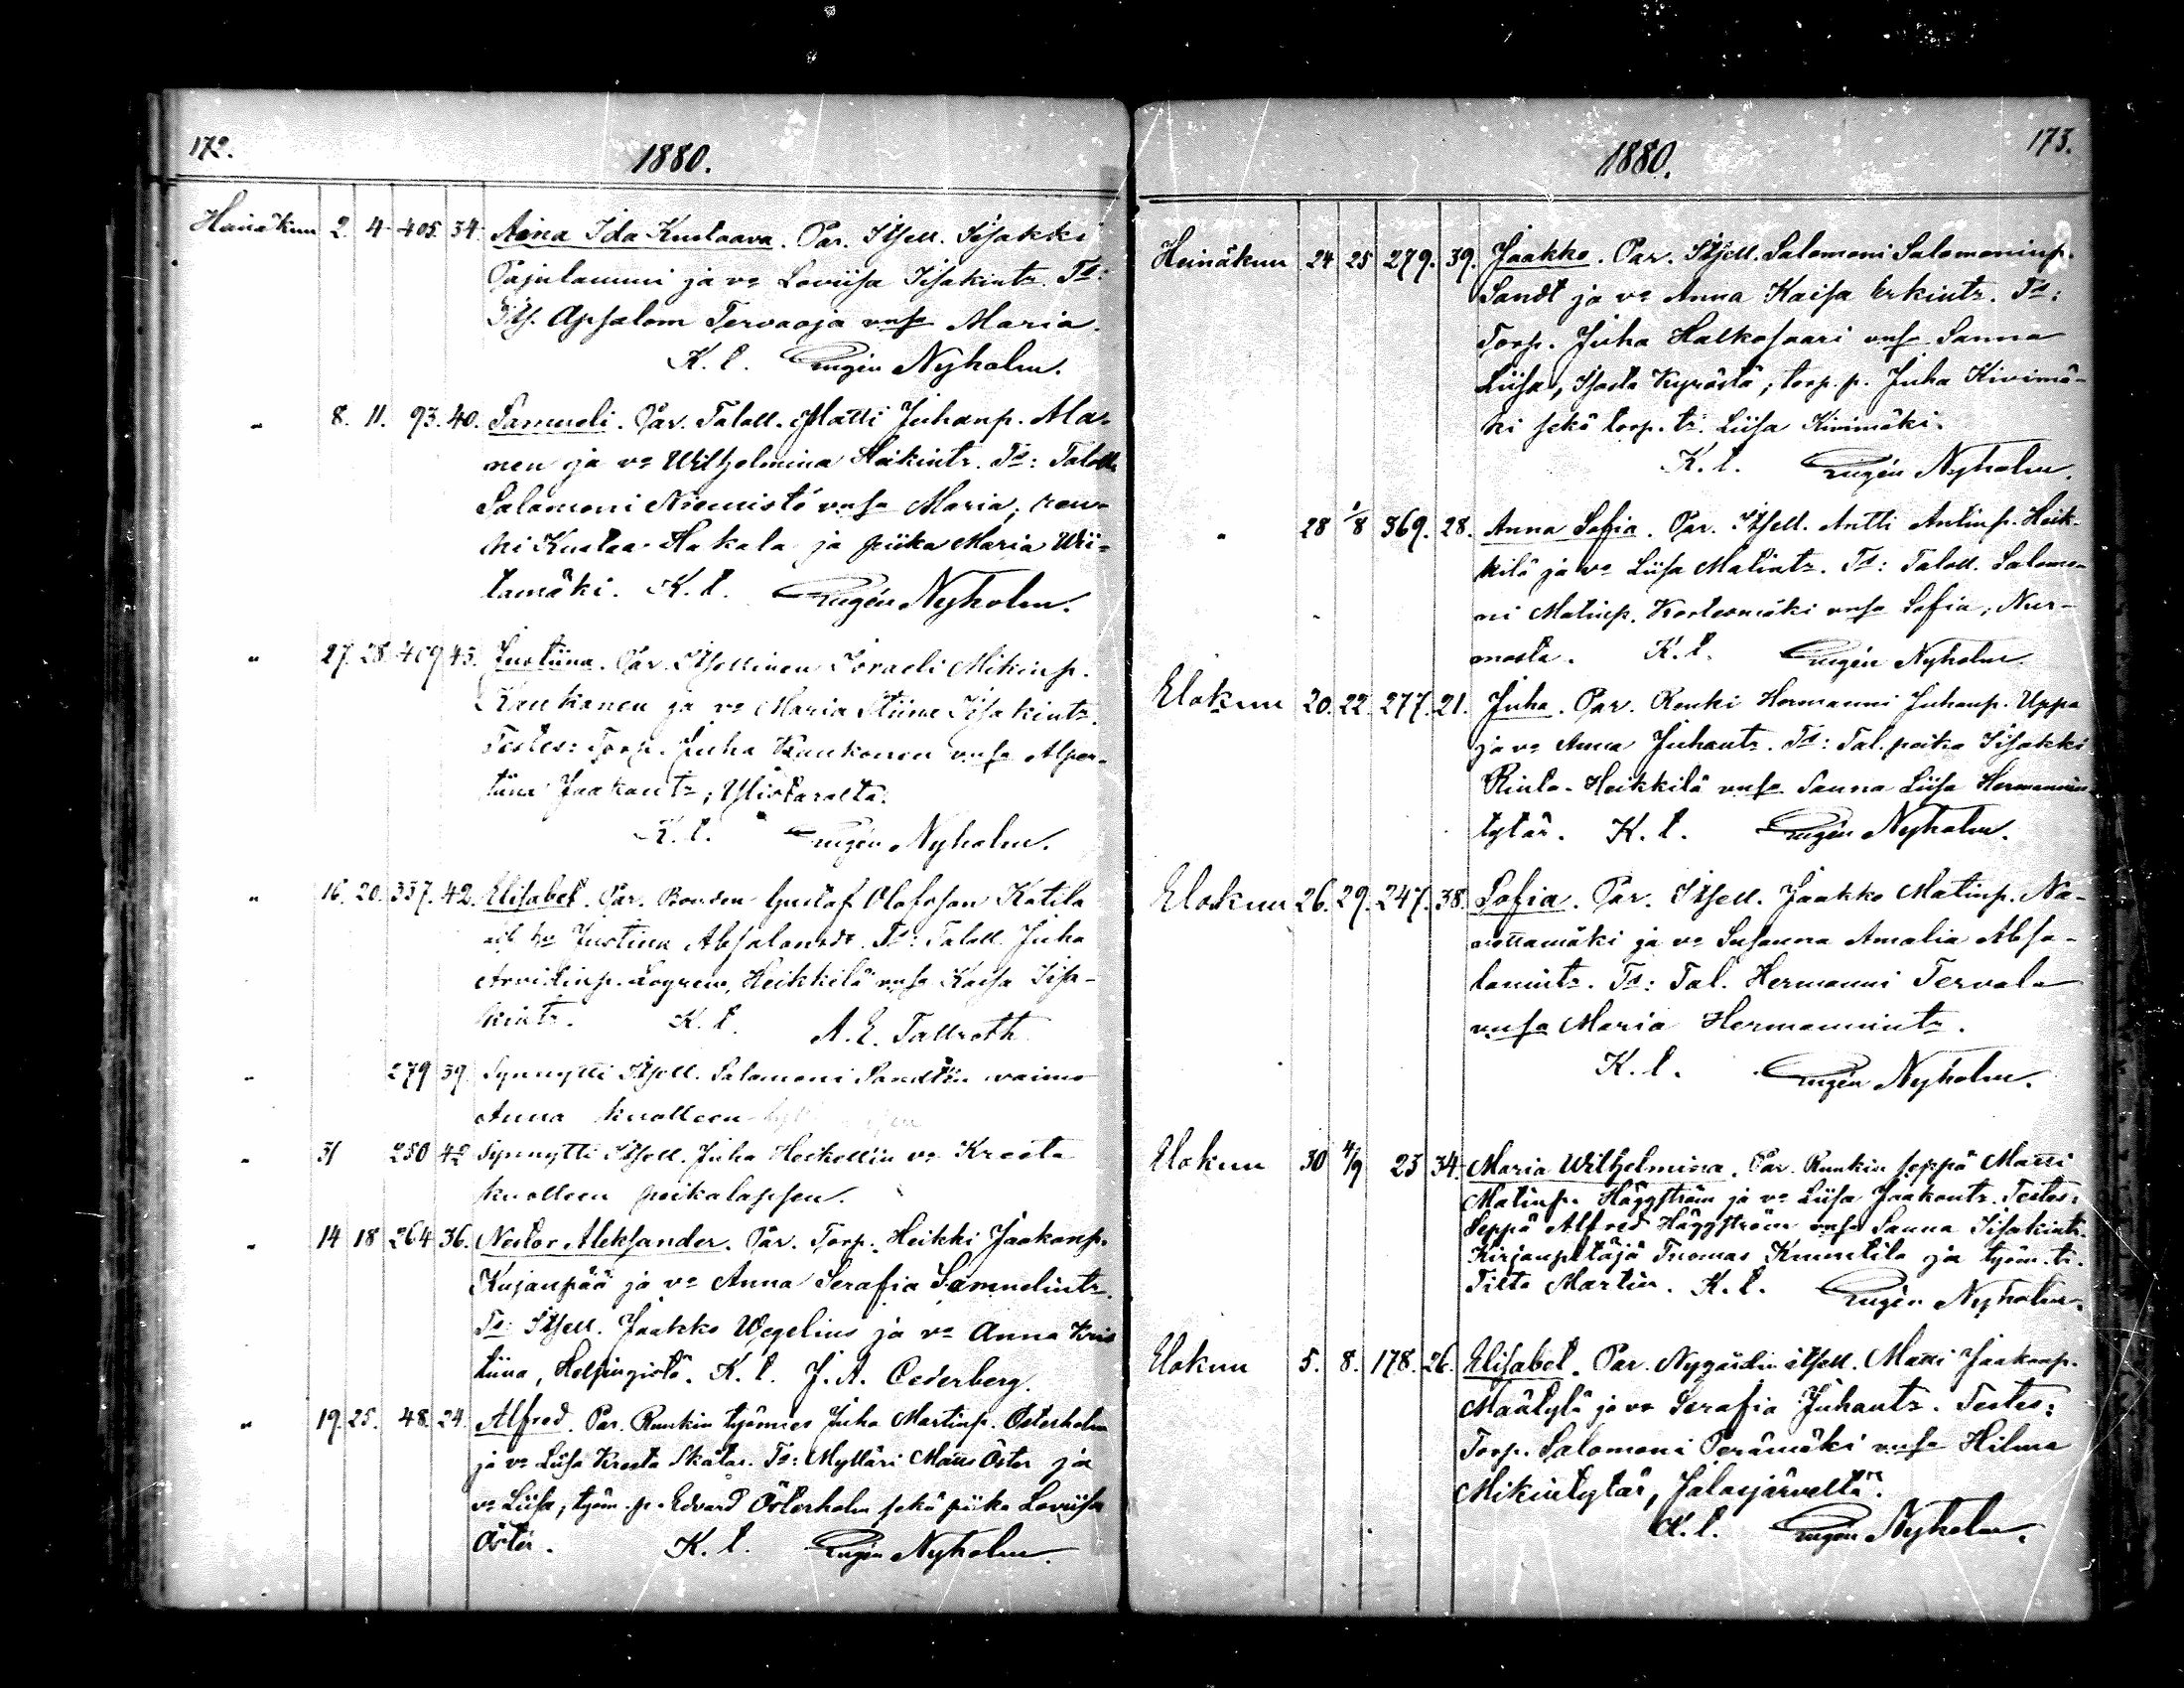 172.
1880.
Heinäkuu 2. 4. 405. 34. Aina Ida Kustaava. Par. Itsell. Iisakki
Pajulammi ja vo Loviisa Iisakintr. Ts:
Its. Apsalom Tervaoja vaso Maria.
K. t. Eugén Nyholm.
" 8. 11. 93. 40. Samueli. Par. Taloll. Matti Juhanp. Ala-
nen ja vo Wilhelmina Heikintr. Ts: Taloll.
Salomoni Niemistö vaso Maria; ren-
ki Kustaa Hakala ja piika Maria Wii-
tamäki. K. t. Eugén Nyholm.
" 27. 28. 409 43. Justiina. Par. Itsellinen Israeli Mikinp.
Kaukonen ja vo Maria Stiina Iisakintr.
Testes: Torp. Juha Kaukonen vaso Alper-
tiina Jaakontr; Ylistarolta.
K. t. Eugén Nyholm.
" 16. 20. 337. 42. Elisabet. Par. Bonden Gustaf Olofsson Katila
Justina Absalonsdr. Ts: Taloll. Juha
Arvidinp. Logren, Heikkilä vaso Kaisa Iisa-
kintr. K. t. A. E. Tallroth
" 279 39. Synnytti Itsell. Salomoni Sandtin vaimo
Anna kuolleen
" 31 250 42 Synnytti Itsell. Juha Heikellin vo Kreeta
kuolleen poikalapsen.
" 14 18 264 36. Nestor Aleksander. Par. Torp. Heikki Jaakonp.
Kujanpää ja vo Anna Serafia Samuelintr.
Ts: Itsell. Jaakko Wegelius ja vo Anna Kris
tiina, Helsingistä. K. t. J. A. Cederberg.
" 19. 25. 48. 24. Alfred. Par. Ruukin työmies Juha Martinp. Österholm
ja vo Liisa Kreeta Skåtar. Ts: Mylläri Matts Öster ja
vo Liisa; työm. p. Edvard Österholm sekä piika Loviisa
Öster. K. t. Eugén Nyholm.
1880.
173.
Heinäkuu 24 25 279. 39. Jaakko. Par. Itsell. Salomoni Salomoninp.
Sandt ja vo Anna Kaisa Erkintr. Ts:
Torp. Juha Halkosaari vaso Sanna
Liisa, Isosta Kyröstä; torp. p. Juha Kivimä-
ki sekä torp. tr. Liisa Kivimäki.
K. t. Eugén Nyholm.
" 28 1/8 369. 28. Anna Sofia. Par. Itsell. Antti Antinp. Heik-
kilä ja vo Liisa Matintr. Ts: Taloll. Salomo-
ni Matinp. Kortesmäki vaso Sofia; Nur-
mosta. K. t. Eugén Nyholm.
Elokuu 20. 22. 277. 21. Juha. Par. Renki Hermanni Juhanp. Uppa
ja vo Anna Juhantr. Ts: Tal. poika Iisakki
Rinta-Heikkilä vaso Sanna Liisa Hermannin-
tytär. K. t. Eugén Nyholm.
Elokuu 26. 29. 247. 38. Sofia. Par. Itsell. Jaakko Matinp. Na-
rottamäki ja vo Susanna Amalia Absa-
lomintr. Ts: Tal. Hermanni Tervala
vaso Maria Hermannintr.
K. t. Eugén Nyholm.
Elokuu 30 4/9 23 34. Maria Wilhelmina. Par. Ruukin seppä Matti
Matinp. Häggström ja vo Liisa Jaakontr. Testes:
Seppä Alfred Häggström vaso Sanna Iisakintr.
Kirjanpitäjä Tuomas Knuutila ja työm. tr.
Tilta Martin. K. t. Eugén Nyholm.
Elokuu 5. 8. 178. 26. Elisabet. Par. Nygårdin itsell. Matti Jaakonp.
Määtylä ja vo Serafia Juhantr. Testes:
Torp. Salomoni Perämäki vaso Hilma
Mikintytär, Jalasjärveltä.
K. t. Eugén Nyholm.